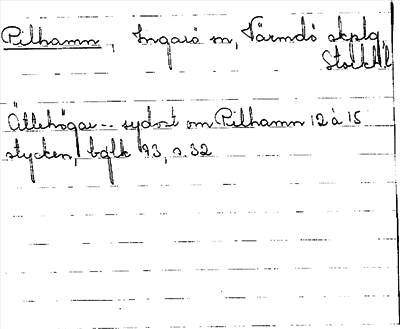 Pilhamn, Ingarö sn, Värmdö skplg,
Stockh. l
Ättehögar -- sydost om Pilhamn 12 à 15
stycken, bglk 93, s. 32